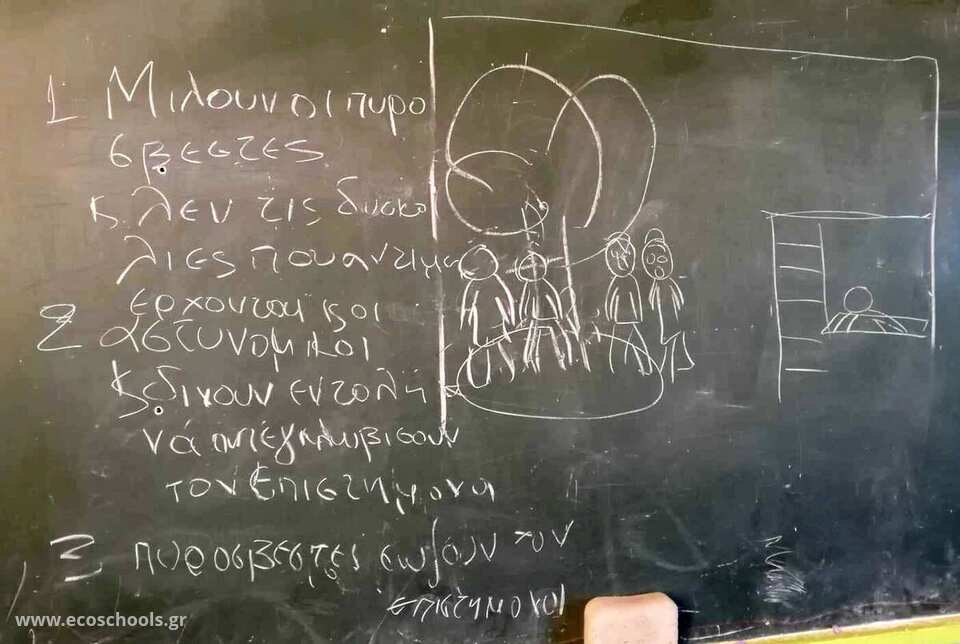 1 Μιλουν οι πυρο
σβεστες
κ. λεν τις δυσκο
λιες που αντιμε
ερχονται κ οι
2 αστυνομικοι
κ. δινουν εντολή
νά απεγκλωβισουν
τον Επιστημονα
3 πυροσβεστες σωζουν τον
επιστημονα
www.ecoschools.gr